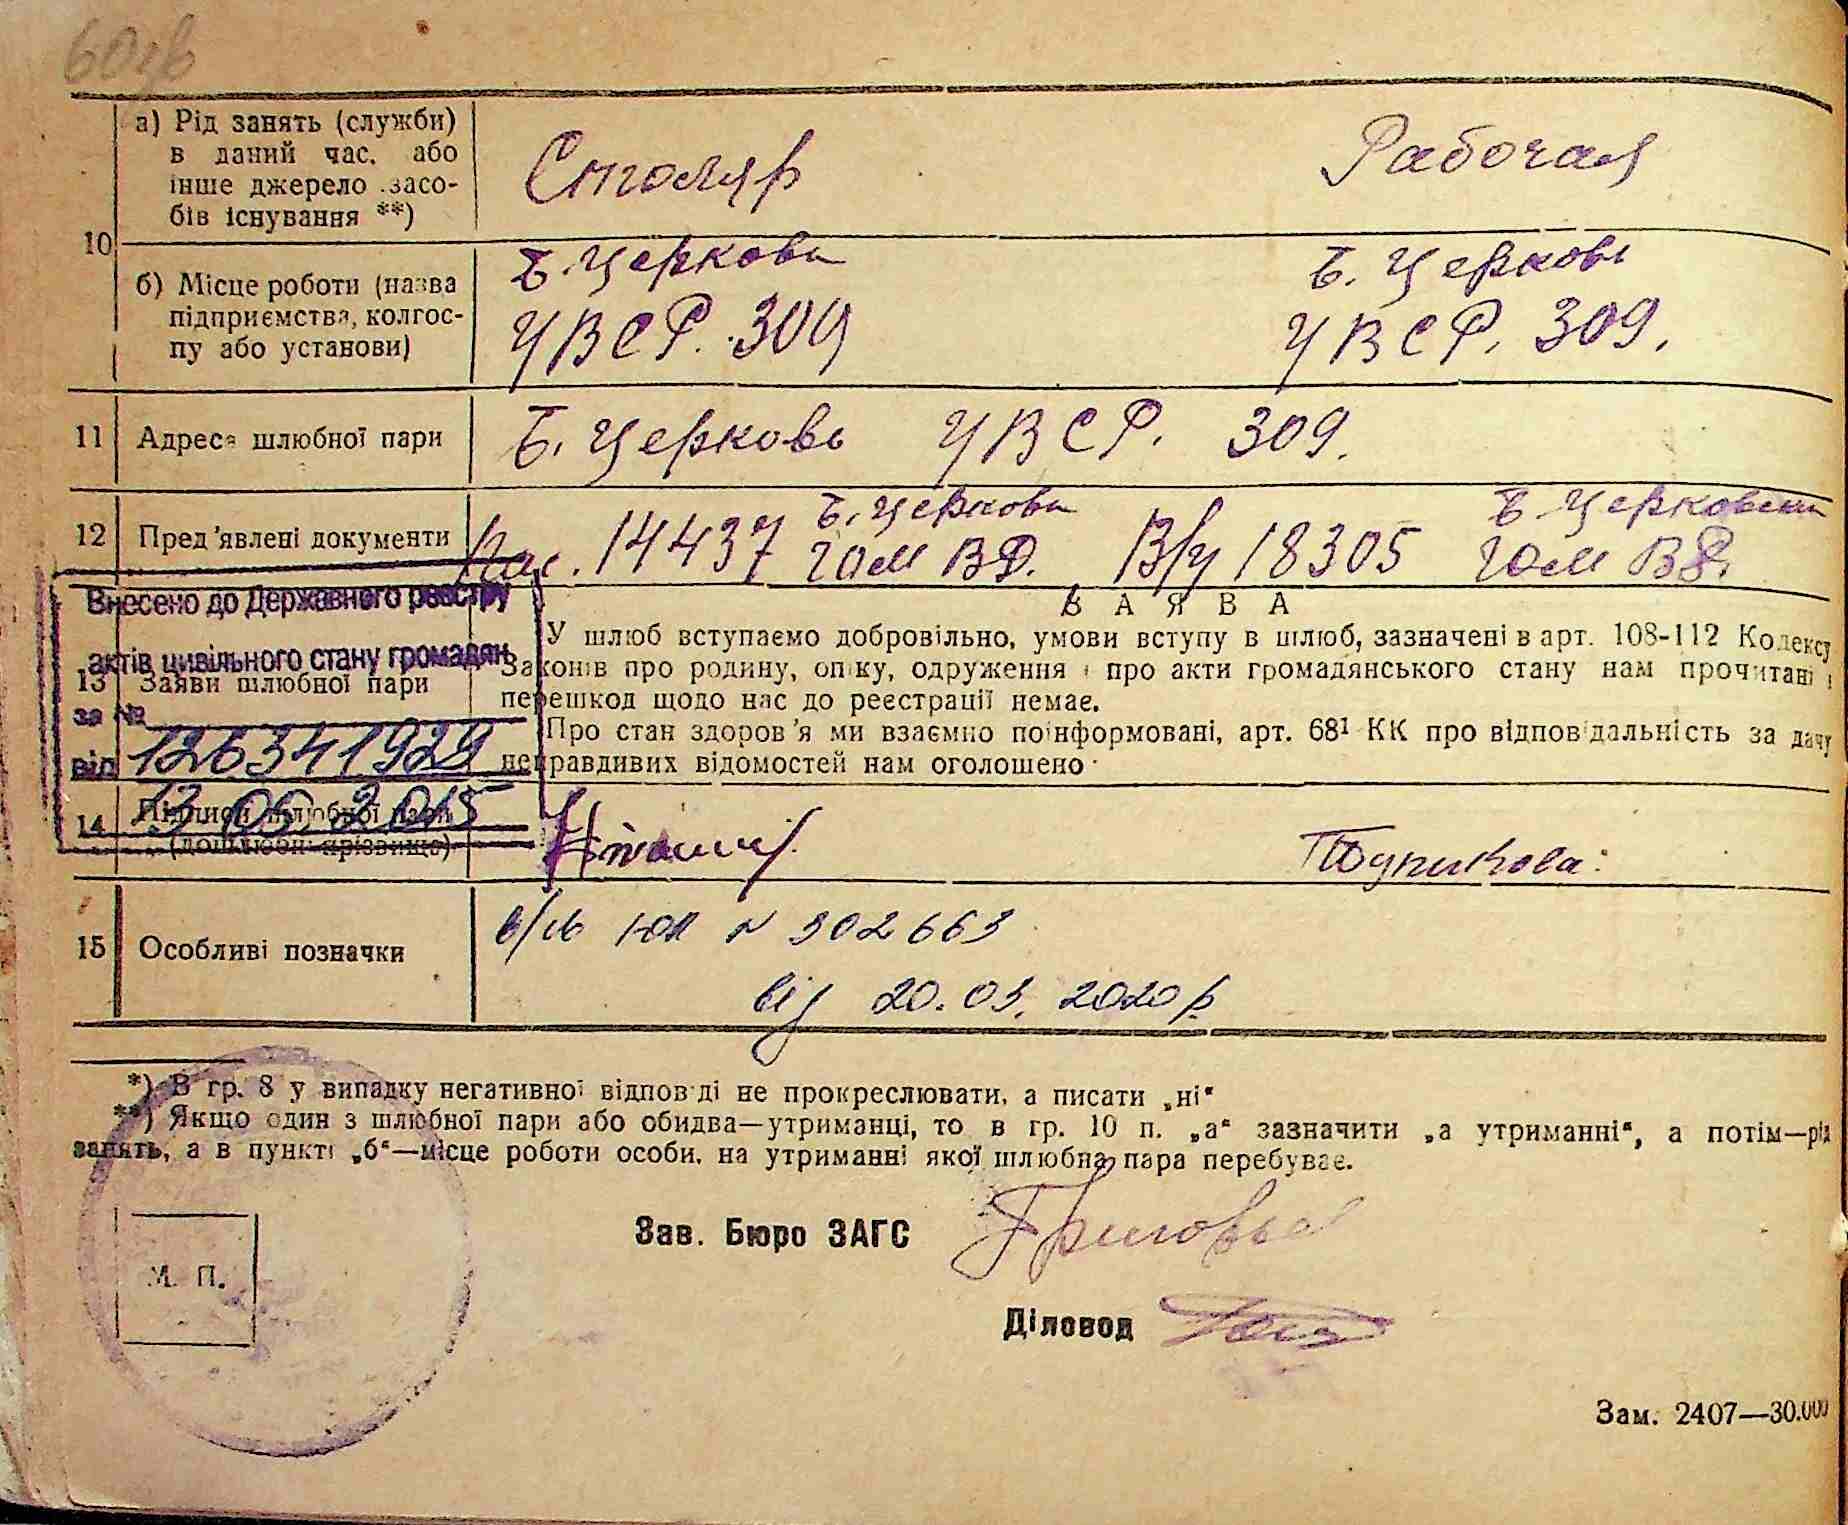 60зв
10
а) Рід занять (служби)
в даний час, або
інше джерело засо-
бів існування **)
Столяр
Рабочая
б) Місце роботи (назва
підприємства, колгос-
пу або установи)
Б. Церковь
УВСР. 309
Б. Церковь
УВСР. 309.
11 Адреса шлюбної пари
Б. Церковь УВСР. 309.
12 Пред'явлені документи
Пас. 14437 Б. Церковь
ГОМ ВД. В/у 18305 Б Церковский
ГОМ ВД.
Внесено до Державного реєстру
актів цивільного стану громадян
за №
1263419 29
від 13 06 2015
13 Заяви шлюбної пари
З А Я В А
У шлюб вступаємо добровільно, умови вступу в шлюб, зазначені в арт. 108-112 Кодексу
Законів про родину, опіку, одруження і про акти громадянського стану нам прочитані і
перешкод щодо нас до реєстрації немає.
Про стан здоров'я ми взаємно поінформовані, арт. 68¹ КК про відповідальність за дачу
неправдивих відомостей нам оголошено
14 Підписи шлюбної пари
(дошлюбні прізвища)
Тупикова
15 Особливі позначки
в/сь ЮП N 302663
від 20.03.2020р
*) В гр. 8 у випадку негативної відповіді не прокреслювати, а писати „ні“
**) Якщо один з шлюбної пари або обидва—утриманці, то в гр. 10 п. „а“ зазначити „а утриманні“, а потім—рід
занять, а в пункті „б“—місце роботи особи, на утриманні якої шлюбна пара перебуває.
М. П.
Зав. Бюро ЗАГС
Діловод
Зам. 2407—30.000